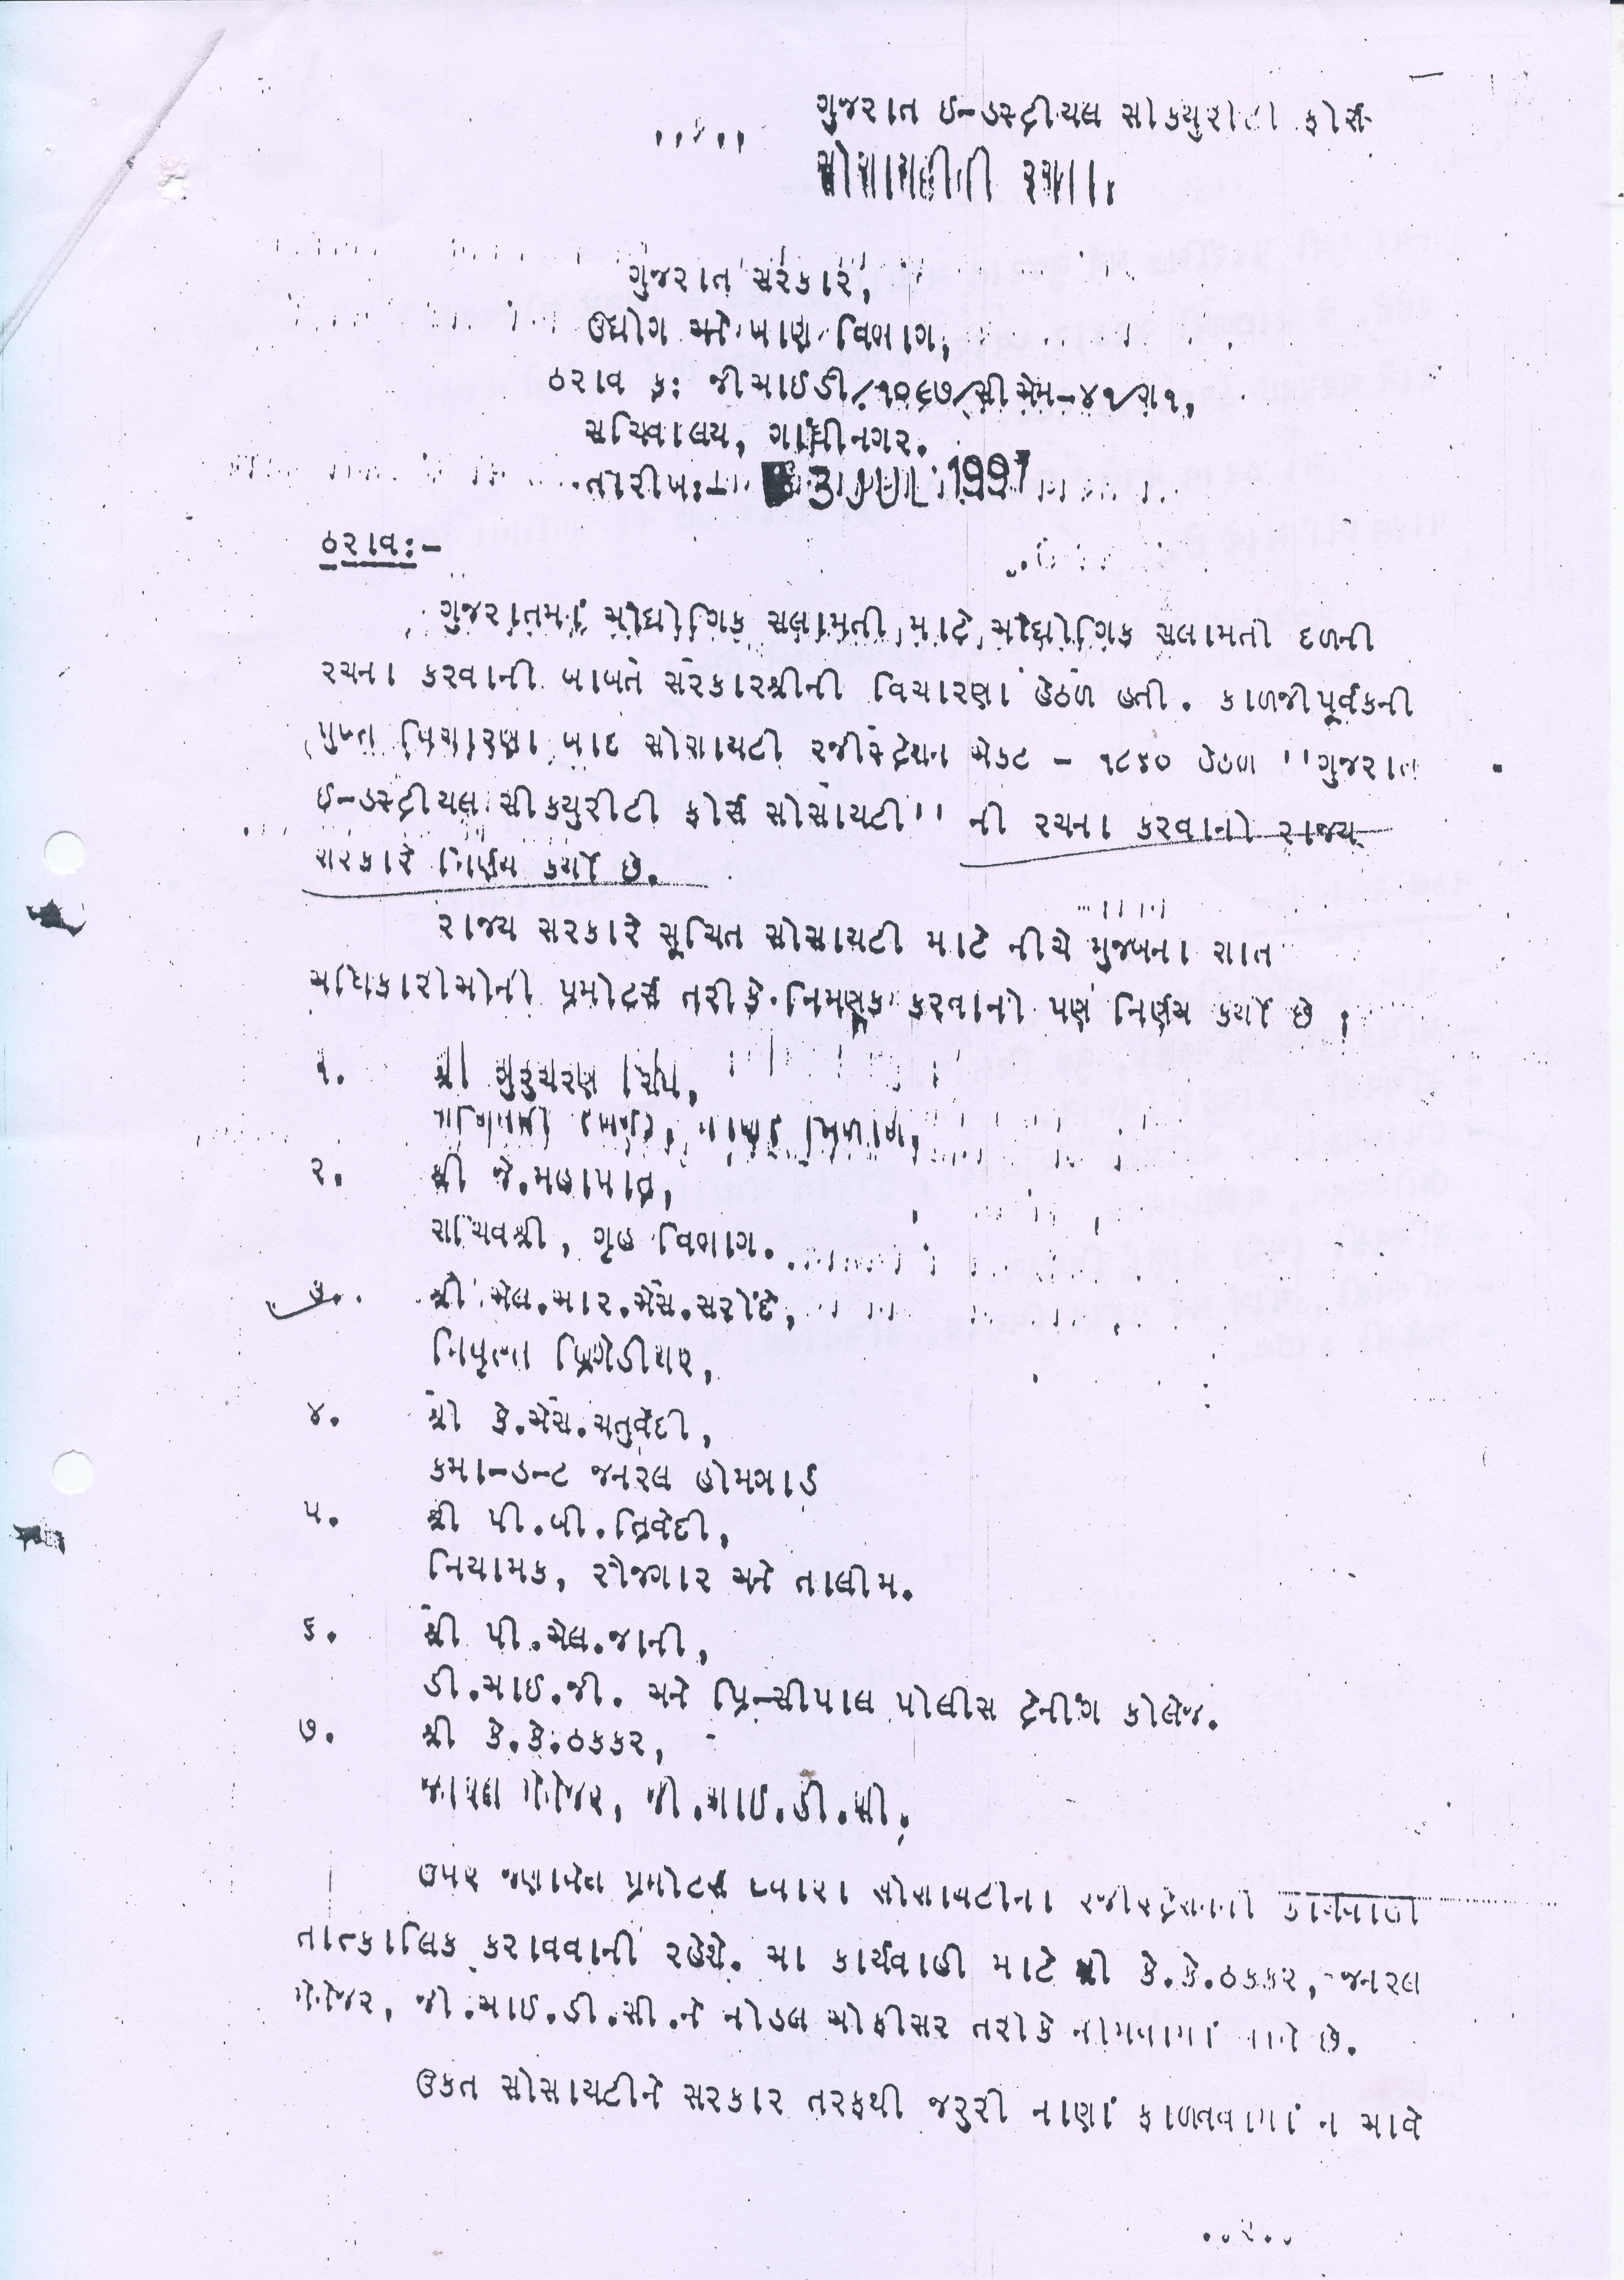 ગુજરાત ઈન્ડસ્ટ્રીયલ સીક્યુરીટી ફોર્સ
સોસાયટીની રચના.
ગુજરાત સરકાર,
ઉદ્યોગ અને ખાણ વિભાગ,
ઠરાવ ક્ર: જીઆઈડી/૧૦૯૭/સીએમ-૪૧/ગ૧,
સચિવાલય, ગાંધીનગર.
તારીખ:- 3 JUL 1997
ઠરાવ:-
ગુજરાતમાં ઔદ્યોગિક સલામતી માટે ઔદ્યોગિક સલામતી દળની
રચના કરવાની બાબત સરકારશ્રીની વિચારણા હેઠળ હતી. કાળજીપૂર્વકની
પુખ્ત વિચારણા બાદ સોસાયટી રજીસ્ટ્રેશન એકટ - ૧૮૬૦ હેઠળ ''ગુજરાત
ઈન્ડસ્ટ્રીયલ સીકયુરીટી ફોર્સ સોસાયટી'' ની રચના કરવાનો રાજય
સરકારે નિર્ણય કર્યો છે.
રાજય સરકારે સૂચિત સોસાયટી માટે નીચે મુજબના સાત
અધિકારીઓની પ્રમોટર્સ તરીકે નિમણૂક કરવાનો પણ નિર્ણય કર્યો છે :
૧. શ્રી ગુરુચરણ સિંઘ,
૨. શ્રી જે.મહાપાત્ર,
સચિવશ્રી, ગૃહ વિભાગ.
૩. શ્રી એલ.આર.એસ.સરોંદે,
નિવૃત્ત બ્રિગેડીયર,
૪. શ્રી કે.એસ.ચતુર્વેદી,
કમાન્ડન્ટ જનરલ હોમગાર્ડ
૫. શ્રી પી.બી.ત્રિવેદી,
નિયામક, રોજગાર અને તાલીમ.
૬. શ્રી પી.એલ.જાની,
ડી.આઈ.જી. અને પ્રિન્સીપાલ પોલીસ ટ્રેનીંગ કોલેજ.
૭. શ્રી કે.કે.ઠકકર,
જનરલ મેનેજર, જી.આઈ.ડી.સી.
ઉપર જણાવેલ પ્રમોટર્સ ધ્વારા સોસાયટીના રજીસ્ટ્રેશનની કાર્યવાહી
તાત્કાલિક કરાવવાની રહેશે. આ કાર્યવાહી માટે શ્રી કે.કે.ઠકકર, જનરલ
મેનેજર, જી.આઈ.ડી.સી.ને નોડલ ઓફીસર તરીકે નીમવામાં આવે છે.
ઉકત સોસાયટીને સરકાર તરફથી જરુરી નાણાં ફાળવવામાં ન આવે
..૨..